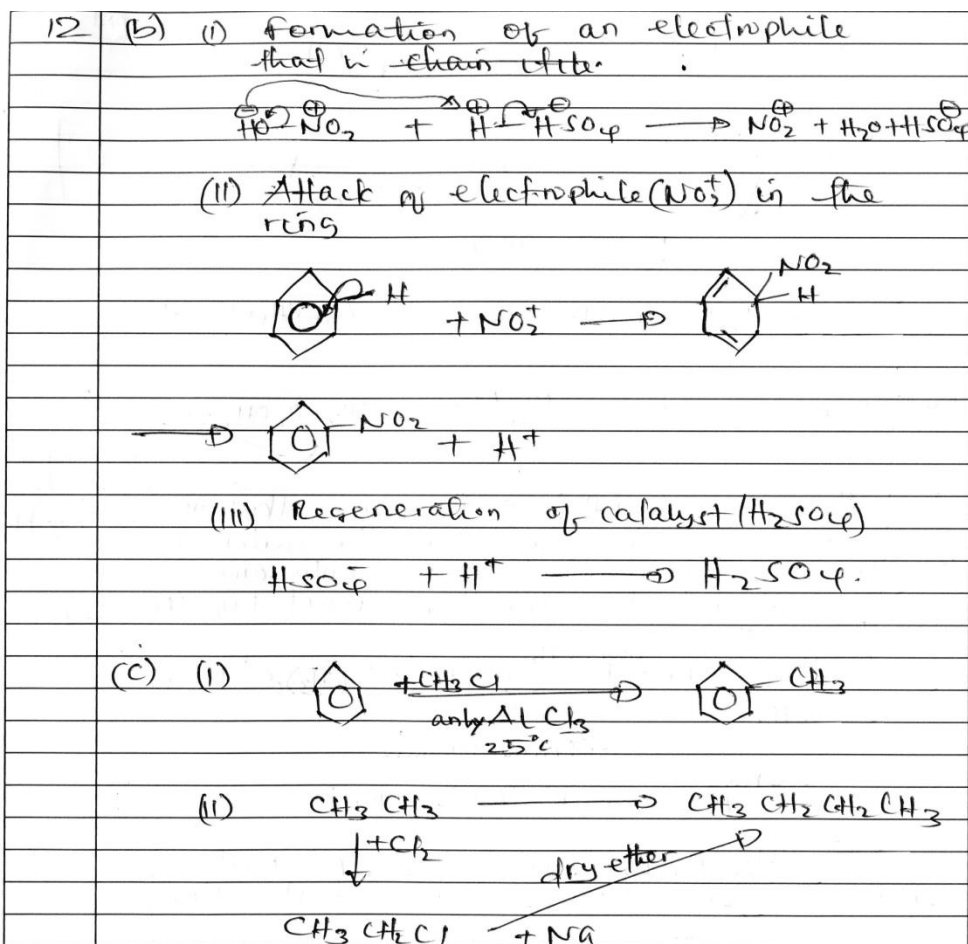 12 (b) (i) Formation of an electrophile
that is
HO⊖ NO2⊕ + H⊕ HSO4⊖ → NO2⊕ + H2O + HSO4⊖
(ii) Attack of electrophile (NO2+) in the
ring
H + NO2+ → NO2 H
→ NO2 + H+
(iii) Regeneration of catalyst (H2SO4)
HSO4- + H+ → H2SO4.
(c) (i) +CH3Cl → CH3
anhy AlCl3
25°C
(ii) CH3CH3 → CH3CH2CH2CH3
↓+Cl2 dry ether
CH3CH2Cl + Na